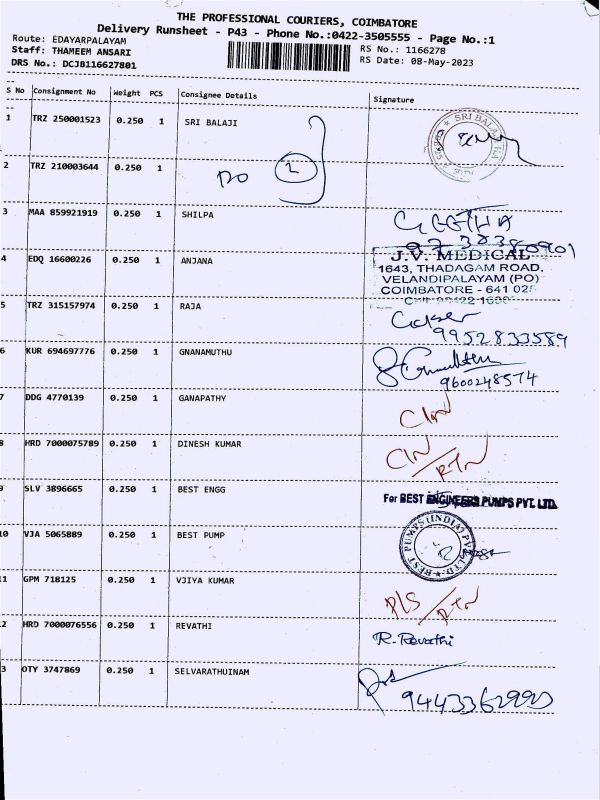 THE PROFESSIONAL COURIERS, COIMBATORE
Delivery Runsheet - P43 - Phone No.:0422-3505555 - Page No.:1
Route: EDAYARPALAYAM
Staff: THAMEEM ANSARI
DRS No.: DCJB116627801
RS No.: 1166278
RS Date: 08-May-2023
S No Consignment No Weight PCS Consignee Details Signature
1 TRZ 250001523 0.250 1 SRI BALAJI
SRI BALA
2 TRZ 210003644 0.250 1 DO 2
3 MAA 859921919 0.250 1 SHILPA GEETHA
4 EDQ 16600226 0.250 1 ANJANA
J.V. MEDICAL
1643, THADAGAM ROAD,
VELANDIPALAYAM (PO)
COIMBATORE - 641 025
5 TRZ 315157974 0.250 1 RAJA
9952833589
6 KUR 694697776 0.250 1 GNANAMUTHU
9600248574
7 DDG 4770139 0.250 1 GANAPATHY
8 HRD 7000075789 0.250 1 DINESH KUMAR RTN
9 SLV 3896665 0.250 1 BEST ENGG
For BEST ENGINEERS PUMPS PVT. LTD.
10 VJA 5065889 0.250 1 BEST PUMP
BEST PUMPS (INDIA) PVT. LTD.
11 GPM 718125 0.250 1 VJIYA KUMAR PLS/RTN
12 HRD 7000076556 0.250 1 REVATHI R. Revathi
13 OTY 3747869 0.250 1 SELVARATHUINAM